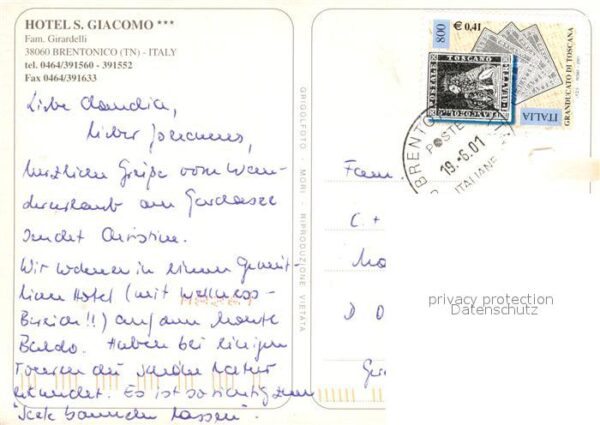 HOTEL S. GIACOMO ***
Fam. Girardelli
38060 BRENTONICO (TN) - ITALY
tel. 0464/391560 - 391552
Fax 0464/391633
Liebe Claudia,
Lieber Johannes,
herzliche Grüße vom Wan-
derurlaub am Gardasee
sendet Christine.
Wir wohnen in einem gemüt-
lichen Hotel (mit Wellness-
Bereich!!) auf dem Monte
Baldo. Haben bei einigen
Touren die schöne Natur
erkundet. Es ist so richtig zum
"Seele baumeln lassen".
GRIGOLFOTO - MORI - RIPRODUZIONE VIETATA
800 € 0,41
FRANCOBOLLO POSTALE TOSCANO
ITALIA
GRANDUCATO DI TOSCANA
BRENTO
POSTE
19.6.01
ITALIANE
Fam
C. +
D
privacy protection
Datenschutz